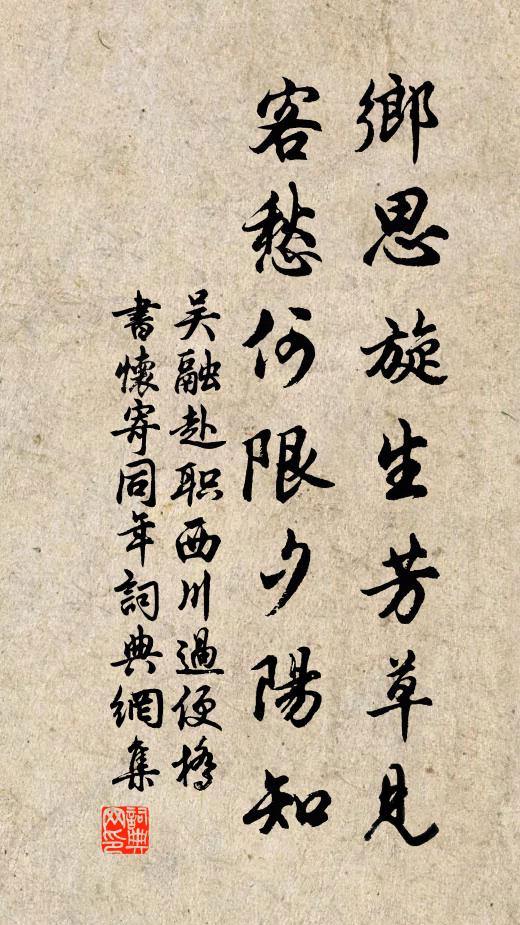 鄉思旋生芳草見
客愁何限夕陽知
吴融赴职西川過便橋
書懷寄同年詞典網集
詞典
网印